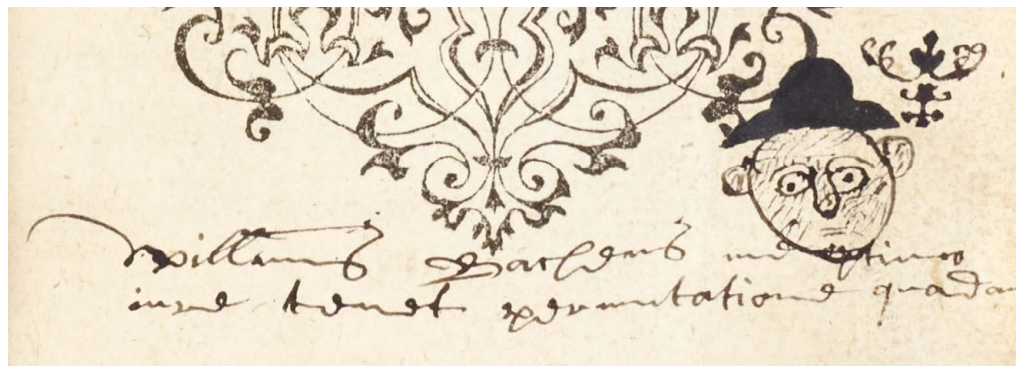 Willamus Bachens me optimo
iure tenet permutatione quadam